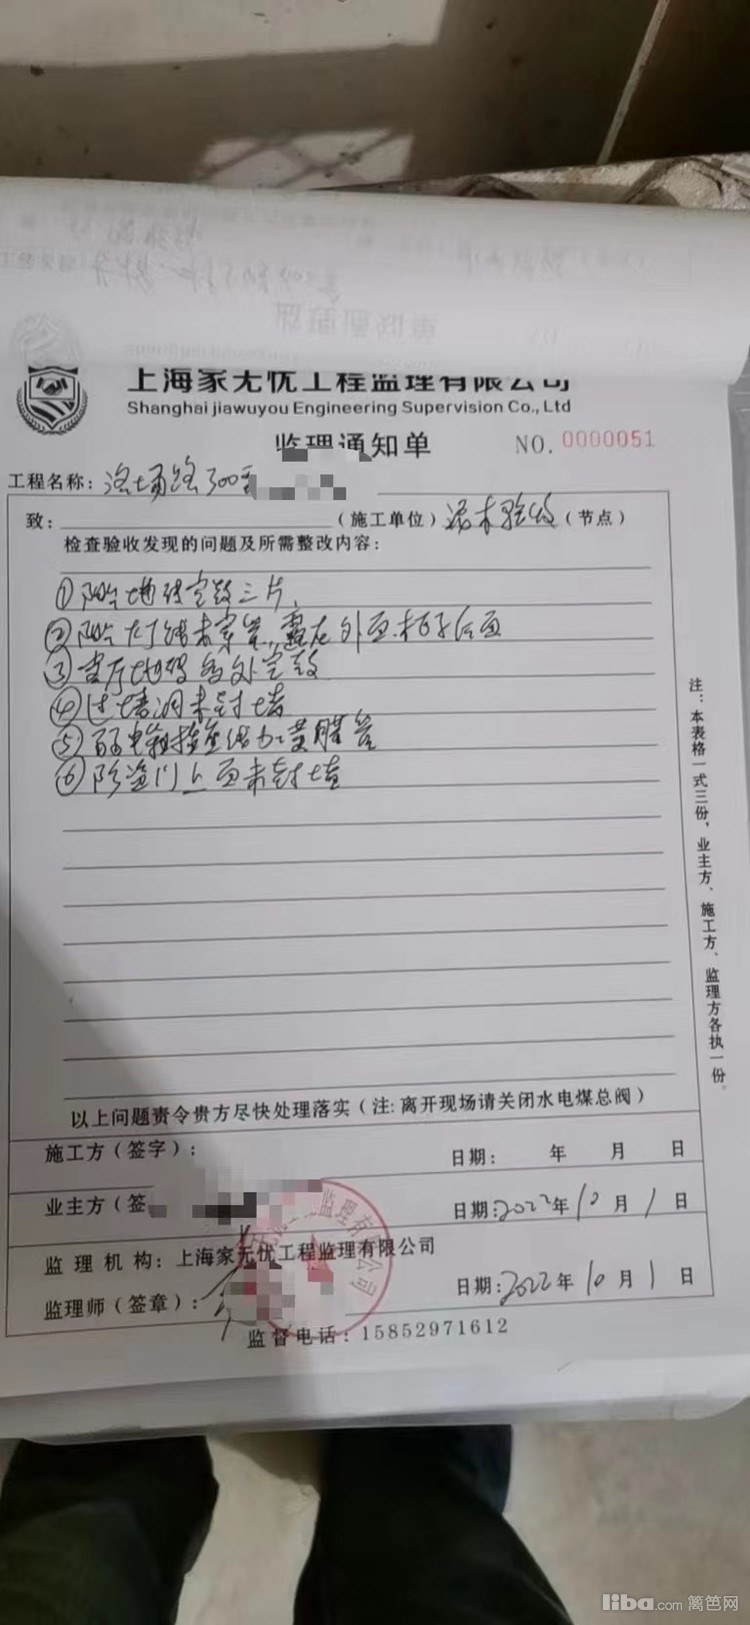 上海家无忧工程监理有限公司
Shanghai jiawuyou Engineering Supervision Co., Ltd
监理通知单
NO. 0000051
工程名称: 洛 路300
致: (施工单位) 泥木验收 (节点)
检查验收发现的问题及所需整改内容:
① 地砖空鼓三片
② 未穿管,露在外面
③ 客厅地砖 空鼓
④ 过墙洞未封堵
⑤ 弱电箱 加黄腊管
⑥ 防盗门上面未封堵
以上问题责令贵方尽快处理落实(注:离开现场请关闭水电煤总阀)
施工方(签字): 日期: 年 月 日
业主方(签 日期:2022年10月1日
监理机构: 上海家无忧工程监理有限公司
监理师(签章): 日期:2022年10月1日
监督电话: 15852971612
注:本表格一式三份,业主方、施工方、监理方各执一份。
liba.com 篱笆网